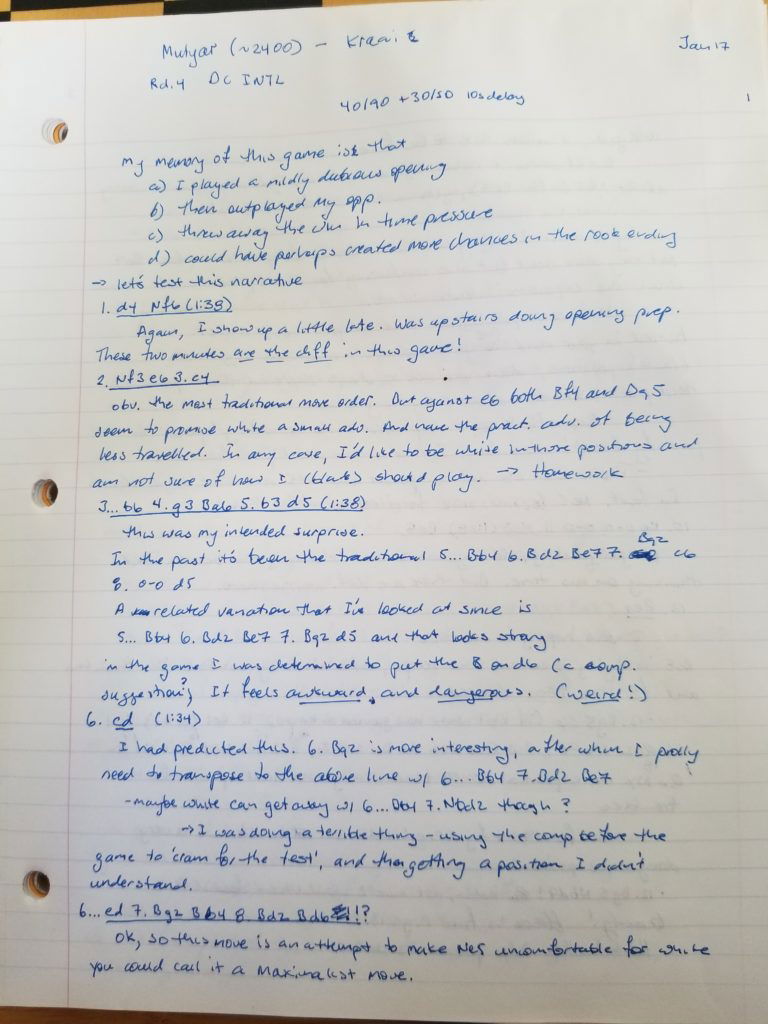 Mutyar (~2400) - Kraai
Jan 17
Rd.4 DC INTL
40/90 + 30/30 10s delay
1
My memory of this game is that
a) I played a mildly dubious opening
b) then outplayed my opp.
c) threw away the win in time pressure
d) could have perhaps created more chances in the rook ending
→ let's test this narrative
1. d4 Nf6 (1:38)
Again, I show up a little late. Was upstairs doing opening prep.
These two minutes are the diff in this game!
2. Nf3 e6 3. c4
obv. the most traditional move order. But against e6 both Bf4 and Bg5
seem to promise white a small adv. And have the pract. adv. of being
less travelled. In any case, I'd like to be white in those positions and
am not sure of how I (black) should play. → Homework
3... b6 4. g3 Ba6 5. b3 d5 (1:38)
this was my intended surprise.
In the past it's been the traditional 5... Bb4 6. Bd2 Be7 7. Bg2 c6
8. 0-0 d5
A related variation that I've looked at since is
5... Bb4 6. Bd2 Be7 7. Bg2 d5 and that looks strong
in the game I was determined to put the B on d6 (a comp.
suggestion?) It feels awkward, and dangerous. (weird!)
6. cd (1:34)
I had predicted this. 6. Bg2 is more interesting, after which I prolly
need to transpose to the above line w/ 6... Bb4 7. Bd2 Be7
- maybe white can get away w/ 6... Bb4 7. Nbd2 though?
→ I was doing a terrible thing - using the comp before the
game to 'cram for the test', and then getting a position I didn't
understand.
6... ed 7. Bg2 Bb4 8. Bd2 Bd6 !?
OK, so this move is an attempt to make Ne5 uncomfortable for white
you could call it a maximalist move.